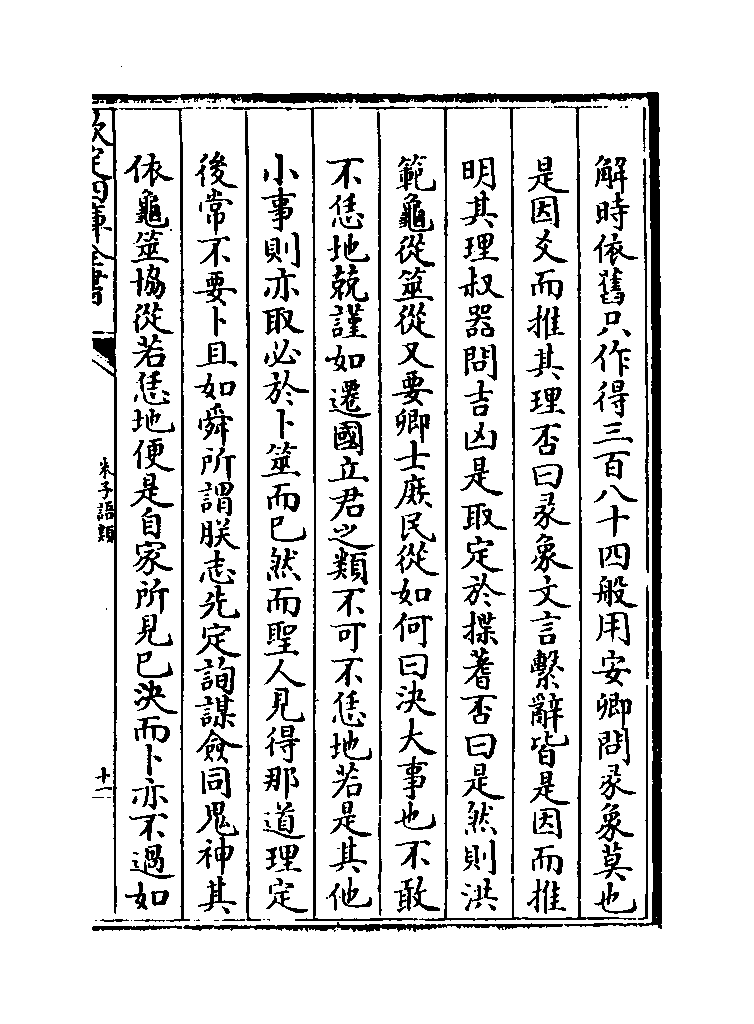 解時依舊只作得三百八十四般用安卿問彖象莫也
是因爻而推其理否曰彖象文言繫辭皆是因而推
明其理叔器問吉凶是取定於揲蓍否曰是然則洪
範龜從筮從又要卿士庶民從如何曰決大事也不敢
不恁地兢謹如遷國立君之類不可不恁地若是其他
小事則亦取必於卜筮而已然而聖人見得那道理定
後常不要卜且如舜所謂朕志先定詢謀僉同鬼神其
依龜筮協從若恁地便是自家所見已決而卜亦不過如
欽定四庫全書
朱子語類
十一